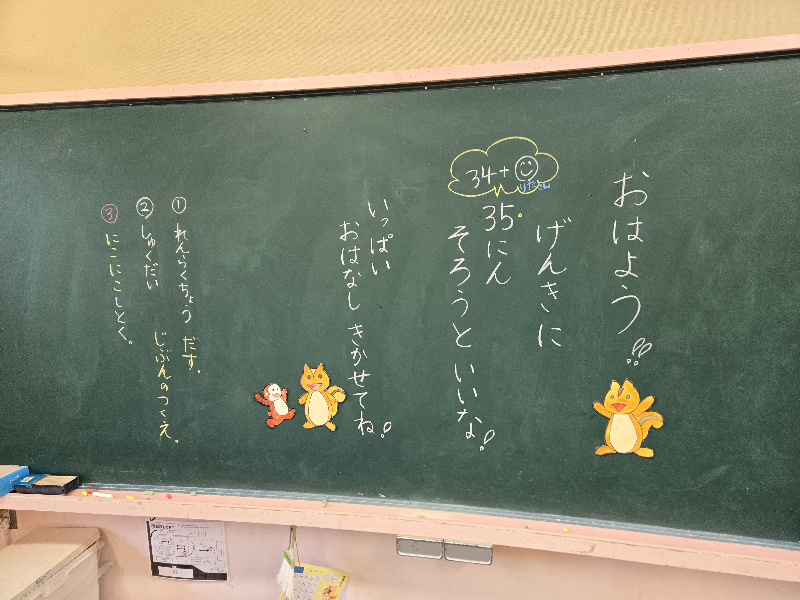 おはよう!!
げんきに
34+
35にん
そろうといいな!
いっぱい
おはなしきかせてね!
① れんらくちょう だす。
じぶんのつくえ。
② しゅくだい
③ にこにこしとく。